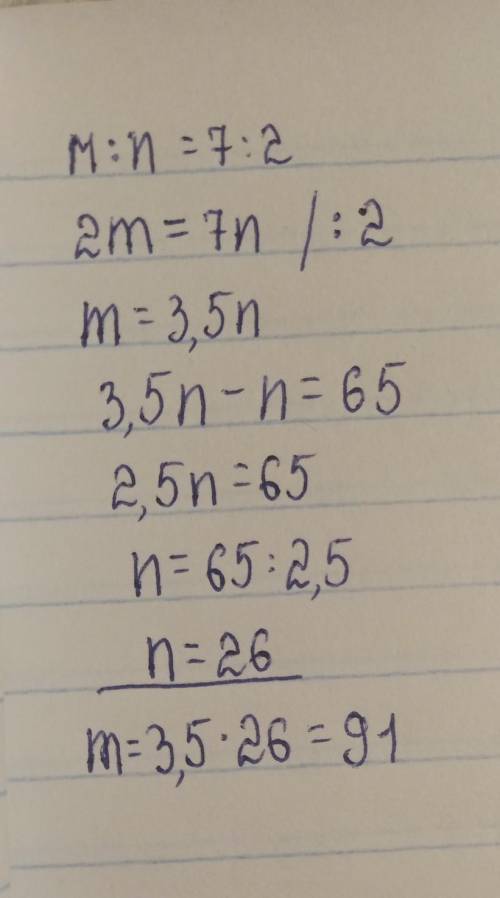 m:n=7:2
2m=7n /:2
m=3,5n
3,5n-n=65
2,5n=65
n=65:2,5
n=26
m=3,5·26=91